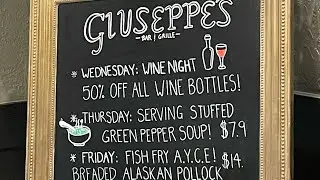 GIUSEPPES
-BAR | GRILLE-
* WEDNESDAY: WINE NIGHT
50% OFF ALL WINE BOTTLES!
* THURSDAY: SERVING STUFFED
GREEN PEPPER SOUP! $7.9
* FRIDAY: FISH FRY A.Y.C.E! $14.
BREADED ALASKAN POLLOCK